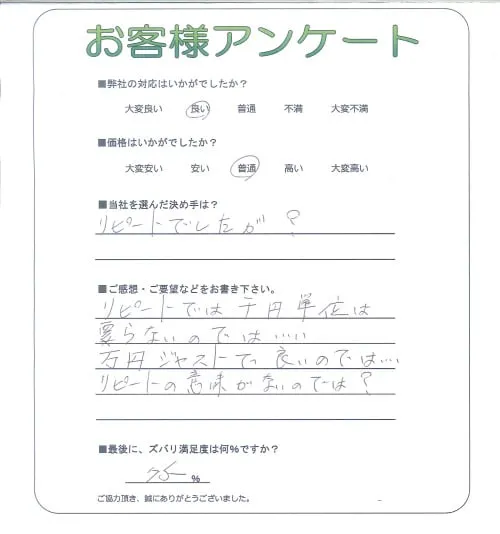 お客様アンケート
■弊社の対応はいかがでしたか？
大変良い 良い 普通 不満 大変不満
■価格はいかがでしたか？
大変安い 安い 普通 高い 大変高い
■当社を選んだ決め手は？
リピートでしたが？
■ご感想・ご要望などをお書き下さい。
リピートでは千円単位は
要らないのでは……
万円ジャストで良いのでは…
リピートの意味がないのでは？
■最後に、ズバリ満足度は何％ですか？
75 %
ご協力頂き、誠にありがとうございました。